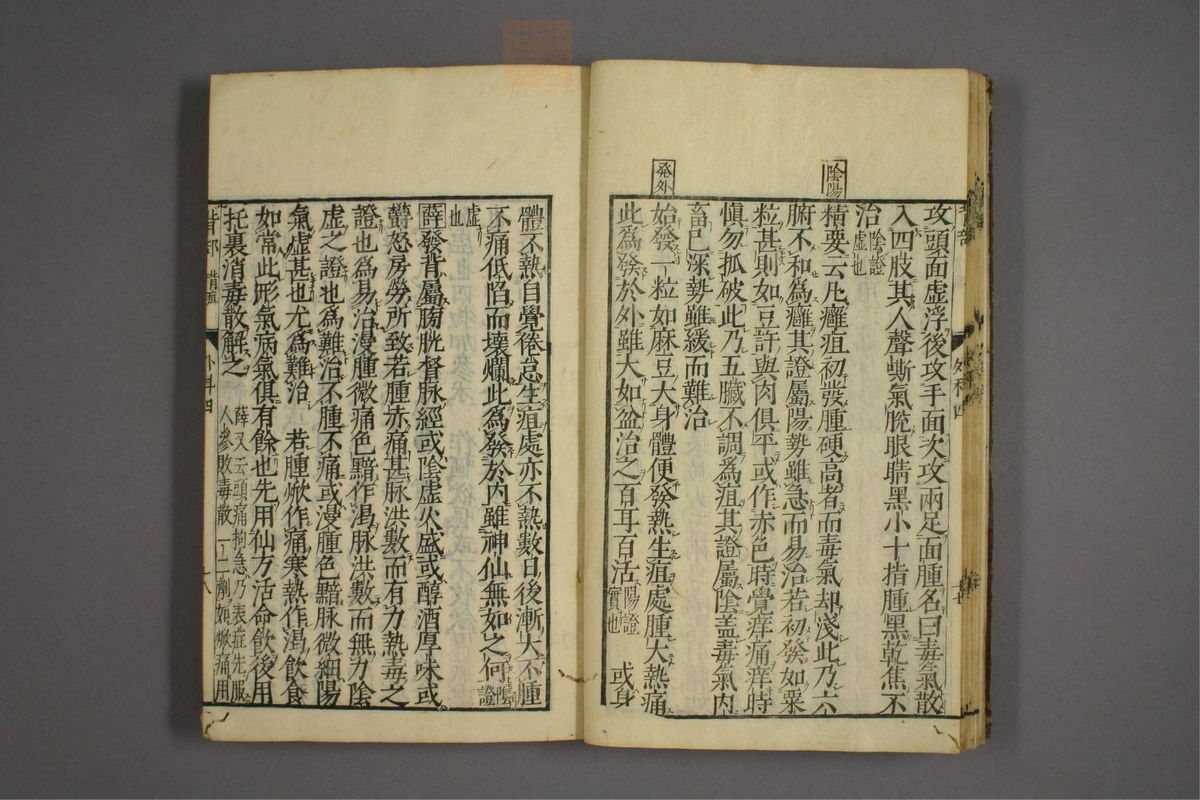 陰陽
発外
攻頭面虛浮後攻手面次攻兩足面腫名曰毒氣散
入四肢其人聲嘶氣脫眼睛黑小十指腫黑乾焦不
治陰證虛也
精要云凡癰疽初發腫硬高者而毒氣却淺此乃六
腑不和為癰其證屬陽勢雖急而易治若初發如粟
粒甚則如豆許與肉俱平或作赤色時覺痒痛痒時
慎勿抓破此乃五臟不調為疽其證屬陰盖毒氣内
畜已深勢雖緩而難治
始發一粒如麻豆大身體便發熱生疽處腫大熱痛
此為發於外雖大如盆治之百耳百活陽證實也 或身
體不熱自覺倦怠生疽處亦不熱數日後漸大不腫
不痛低陷而壞爛此為發於内雖神仙無如之何陰證
虛也
薛發背屬膀胱督脉經或陰虛火盛或醇酒厚味或
欝怒房勞所致若腫赤痛甚脉洪數而有力熱毒之
證也為易治漫腫微痛色黯作渴脉洪數而無力陰
虛之證也為難治不腫不痛或漫腫色黯脉微細陽
氣虛甚也尤為難治 若腫焮作痛寒熱作渴飲食
如常此形氣病氣俱有餘也先用仙方活命飲後用
托裏消毒散解之 薛又云頭痛拘急乃表症先服人參敗毒散一二劑如焮痛用
背部
外科四
十八
外科四